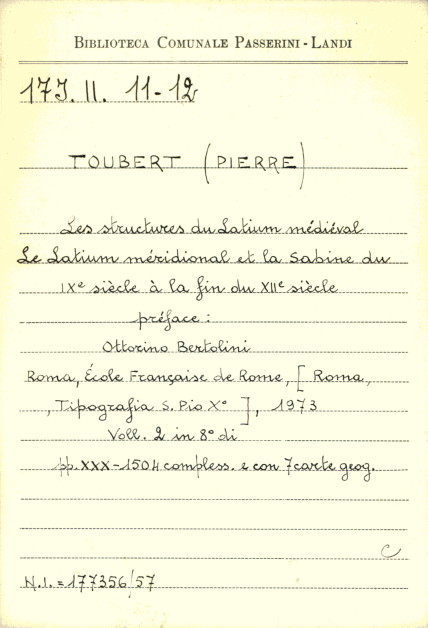 BIBLIOTECA COMUNALE PASSERINI-LANDI
17J. II. 11-12
TOUBERT (PIERRE)
Les structures du Latium médiéval
Le Latium méridional et la Sabine du
IXe siècle à la fin du XIIe siècle
préface:
Ottorino Bertolini
Roma, École Française de Rome, [Roma,
, Tipografia S. Pio X°], 1973
Voll. 2 in 8° di
pp. XXX-1504 compless. e con 7 carte geog.
C
N.I.=177356/57